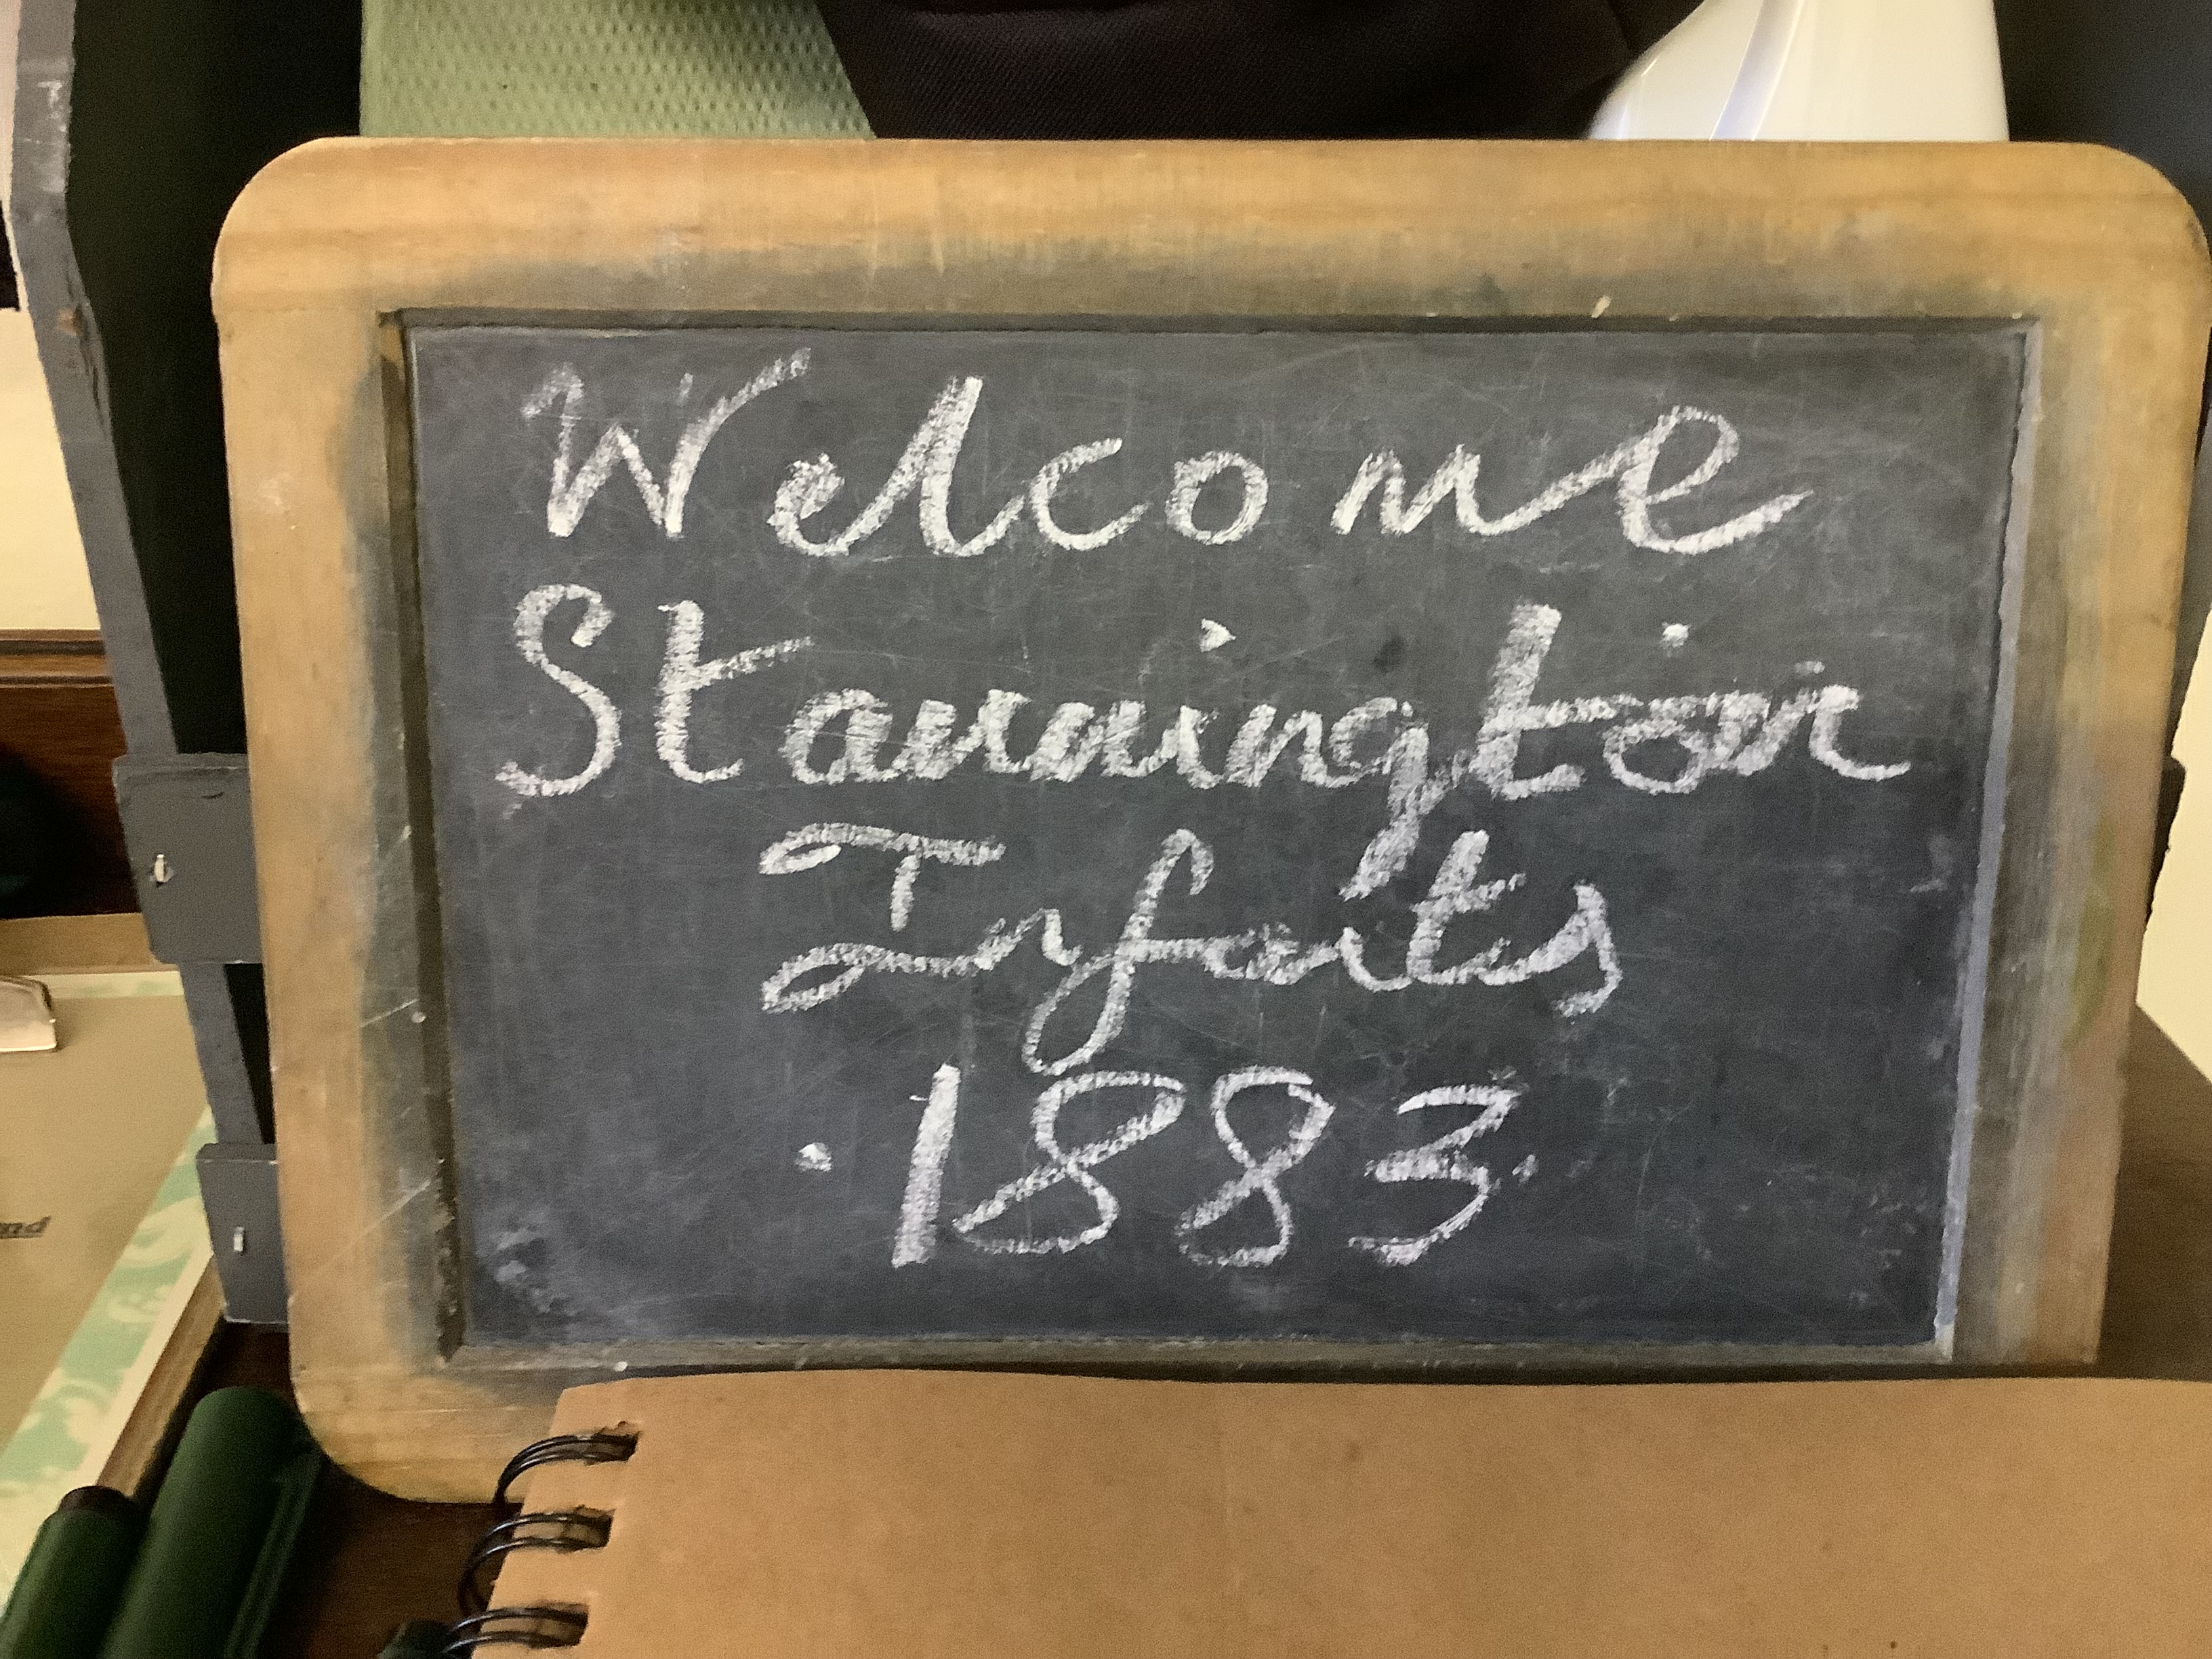 Welcome
Stannington
Infants
.1883.
nd